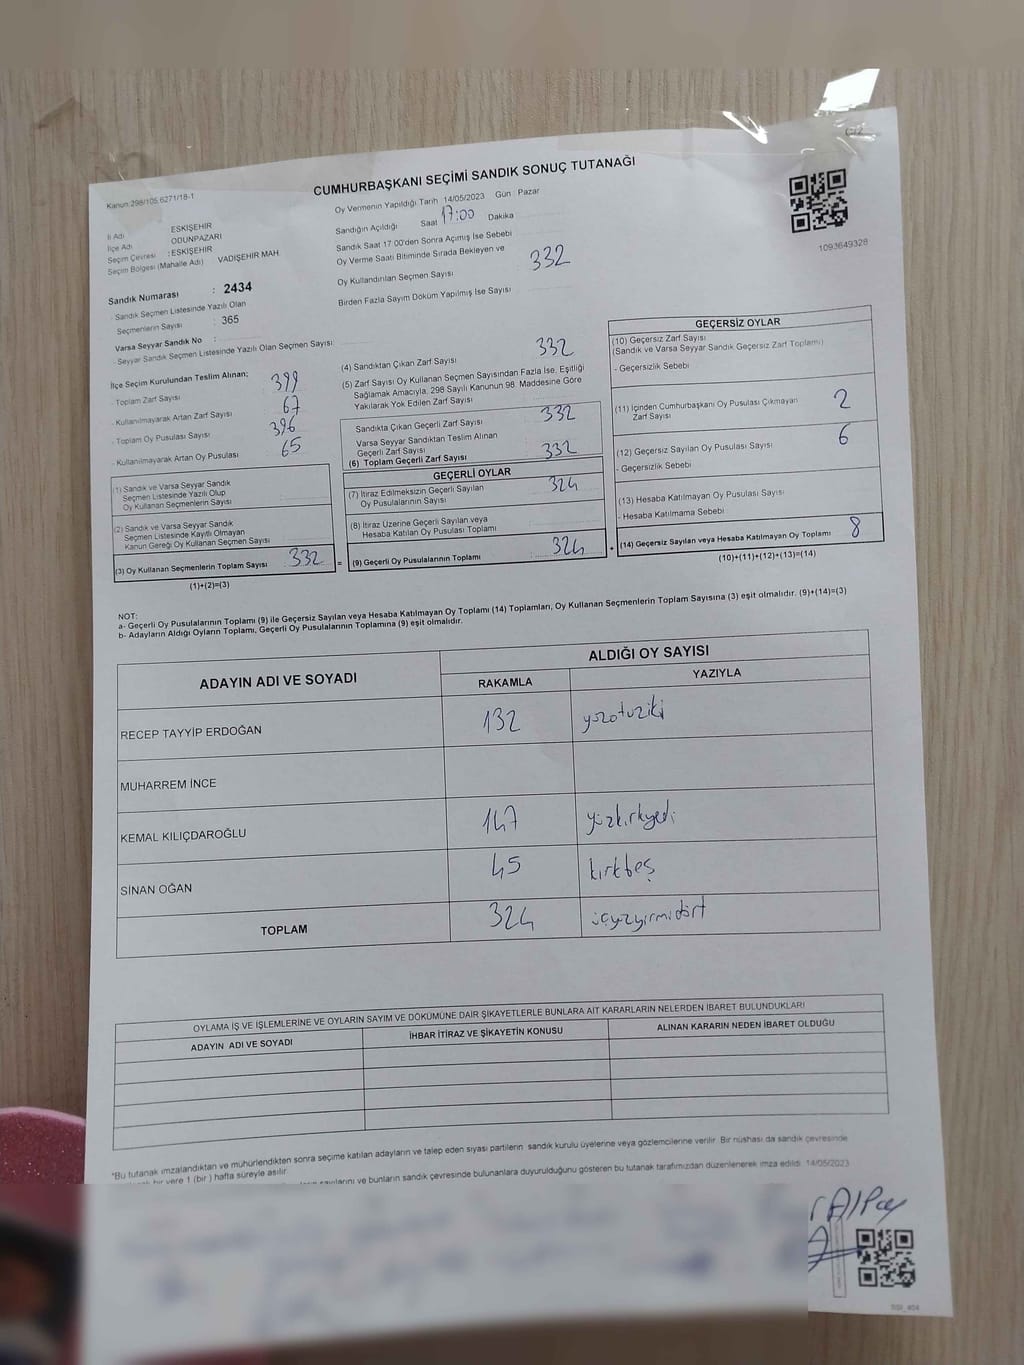 CUMHURBAŞKANI SEÇİMİ SANDIK SONUÇ TUTANAĞI
Kanun:298/105,6271/18-1
İl Adı ESKİŞEHİR
İlçe Adı ODUNPAZARI
Seçim Çevresi : ESKİŞEHİR
Seçim Bölgesi (Mahalle Adı) VADİŞEHİR MAH
Sandık Numarası : 2434
Sandık Seçmen Listesinde Yazılı Olan
Seçmenlerin Sayısı : 365
Varsa Seyyar Sandık No :
- Seyyar Sandık Seçmen Listesinde Yazılı Olan Seçmen Sayısı:
Oy Vermenin Yapıldığı Tarih 14/05/2023 Gün : Pazar
Sandığın Açıldığı Saat 17:00 Dakika
Sandık Saat 17:00'den Sonra Açımış İse Sebebi
Oy Verme Saati Bitiminde Sırada Bekleyen ve
Oy Kullandırılan Seçmen Sayısı 332
Birden Fazla Sayım Döküm Yapılmış İse Sayısı
1093649328
İlçe Seçim Kurulundan Teslim Alınan;
- Toplam Zarf Sayısı 399
- Kullanılmayarak Artan Zarf Sayısı 67
- Toplam Oy Pusulası Sayısı 396
- Kullanılmayarak Artan Oy Pusulası 65
(1) Sandık ve Varsa Seyyar Sandık
Seçmen Listesinde Yazılı Olup
Oy Kullanan Seçmenlerin Sayısı
(2) Sandık ve Varsa Seyyar Sandık
Seçmen Listesinde Kayıtlı Olmayan
Kanun Gereği Oy Kullanan Seçmen Sayısı
(3) Oy Kullanan Seçmenlerin Toplam Sayısı 332
(1)+(2)=(3)
(4) Sandıktan Çıkan Zarf Sayısı 332
(5) Zarf Sayısı Oy Kullanan Seçmen Sayısından Fazla İse, Eşitliği
Sağlamak Amacıyla, 298 Sayılı Kanunun 98. Maddesine Göre
Yakılarak Yok Edilen Zarf Sayısı
Sandıkta Çıkan Geçerli Zarf Sayısı 332
Varsa Seyyar Sandıktan Teslim Alınan
Geçerli Zarf Sayısı
(6) Toplam Geçerli Zarf Sayısı 332
GEÇERLİ OYLAR
(7) İtiraz Edilmeksizin Geçerli Sayılan
Oy Pusulalarının Sayısı 324
(8) İtiraz Üzerine Geçerli Sayılan veya
Hesaba Katılan Oy Pusulası Toplamı
= (9) Geçerli Oy Pusulalarının Toplamı 324
GEÇERSİZ OYLAR
(10) Geçersiz Zarf Sayısı
(Sandık ve Varsa Seyyar Sandık Geçersiz Zarf Toplamı)
- Geçersizlik Sebebi
(11) İçinden Cumhurbaşkanı Oy Pusulası Çıkmayan
Zarf Sayısı 2
(12) Geçersiz Sayılan Oy Pusulası Sayısı 6
- Geçersizlik Sebebi
(13) Hesaba Katılmayan Oy Pusulası Sayısı
- Hesaba Katılmama Sebebi
+ (14) Geçersiz Sayılan veya Hesaba Katılmayan Oy Toplamı 8
(10)+(11)+(12)+(13)=(14)
NOT:
a- Geçerli Oy Pusulalarının Toplamı (9) ile Geçersiz Sayılan veya Hesaba Katılmayan Oy Toplamı (14) Toplamları, Oy Kullanan Seçmenlerin Toplam Sayısına (3) eşit olmalıdır. (9)+(14)=(3)
b- Adayların Aldığı Oyların Toplamı, Geçerli Oy Pusulalarının Toplamına (9) eşit olmalıdır.
ADAYIN ADI VE SOYADI
ALDIĞI OY SAYISI
RAKAMLA YAZIYLA
RECEP TAYYİP ERDOĞAN 132 yüzotuziki
MUHARREM İNCE
KEMAL KILIÇDAROĞLU 147 yüzkırkyedi
SİNAN OĞAN 45 kırkbeş
TOPLAM 324 üçyüzyirmidört
OYLAMA İŞ VE İŞLEMLERİNE VE OYLARIN SAYIM VE DÖKÜMÜNE DAİR ŞİKAYETLERLE BUNLARA AİT KARARLARIN NELERDEN İBARET BULUNDUKLARI
ADAYIN ADI VE SOYADI İHBAR İTİRAZ VE ŞİKAYETİN KONUSU ALINAN KARARIN NEDEN İBARET OLDUĞU
*Bu tutanak imzalandıktan ve mühürlendikten sonra seçime katılan adayların ve talep eden siyasi partilerin sandık kurulu üyelerine veya gözlemcilerine verilir. Bir nüshası da sandık çevresinde
bir yere 1 (bir) hafta süreyle asılır.
sayılarını ve bunların sandık çevresinde bulunanlara duyurulduğunu gösteren bu tutanak tarafımızdan düzenlenerek imza edildi. 14/05/2023
Alpay